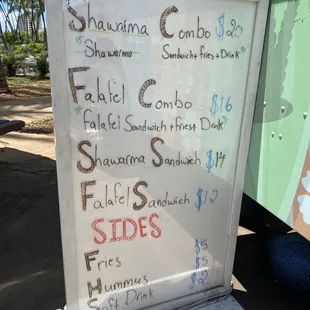 Shawarma Combo $20
"Shawarma Sandwich + fries + Drink"
Falafel Combo $16
"Falafel Sandwich + fries + Drink"
Shawarma Sandwich $14
Falafel Sandwich $12
SIDES
Fries $5
Hummus $5
Soft Drink $2